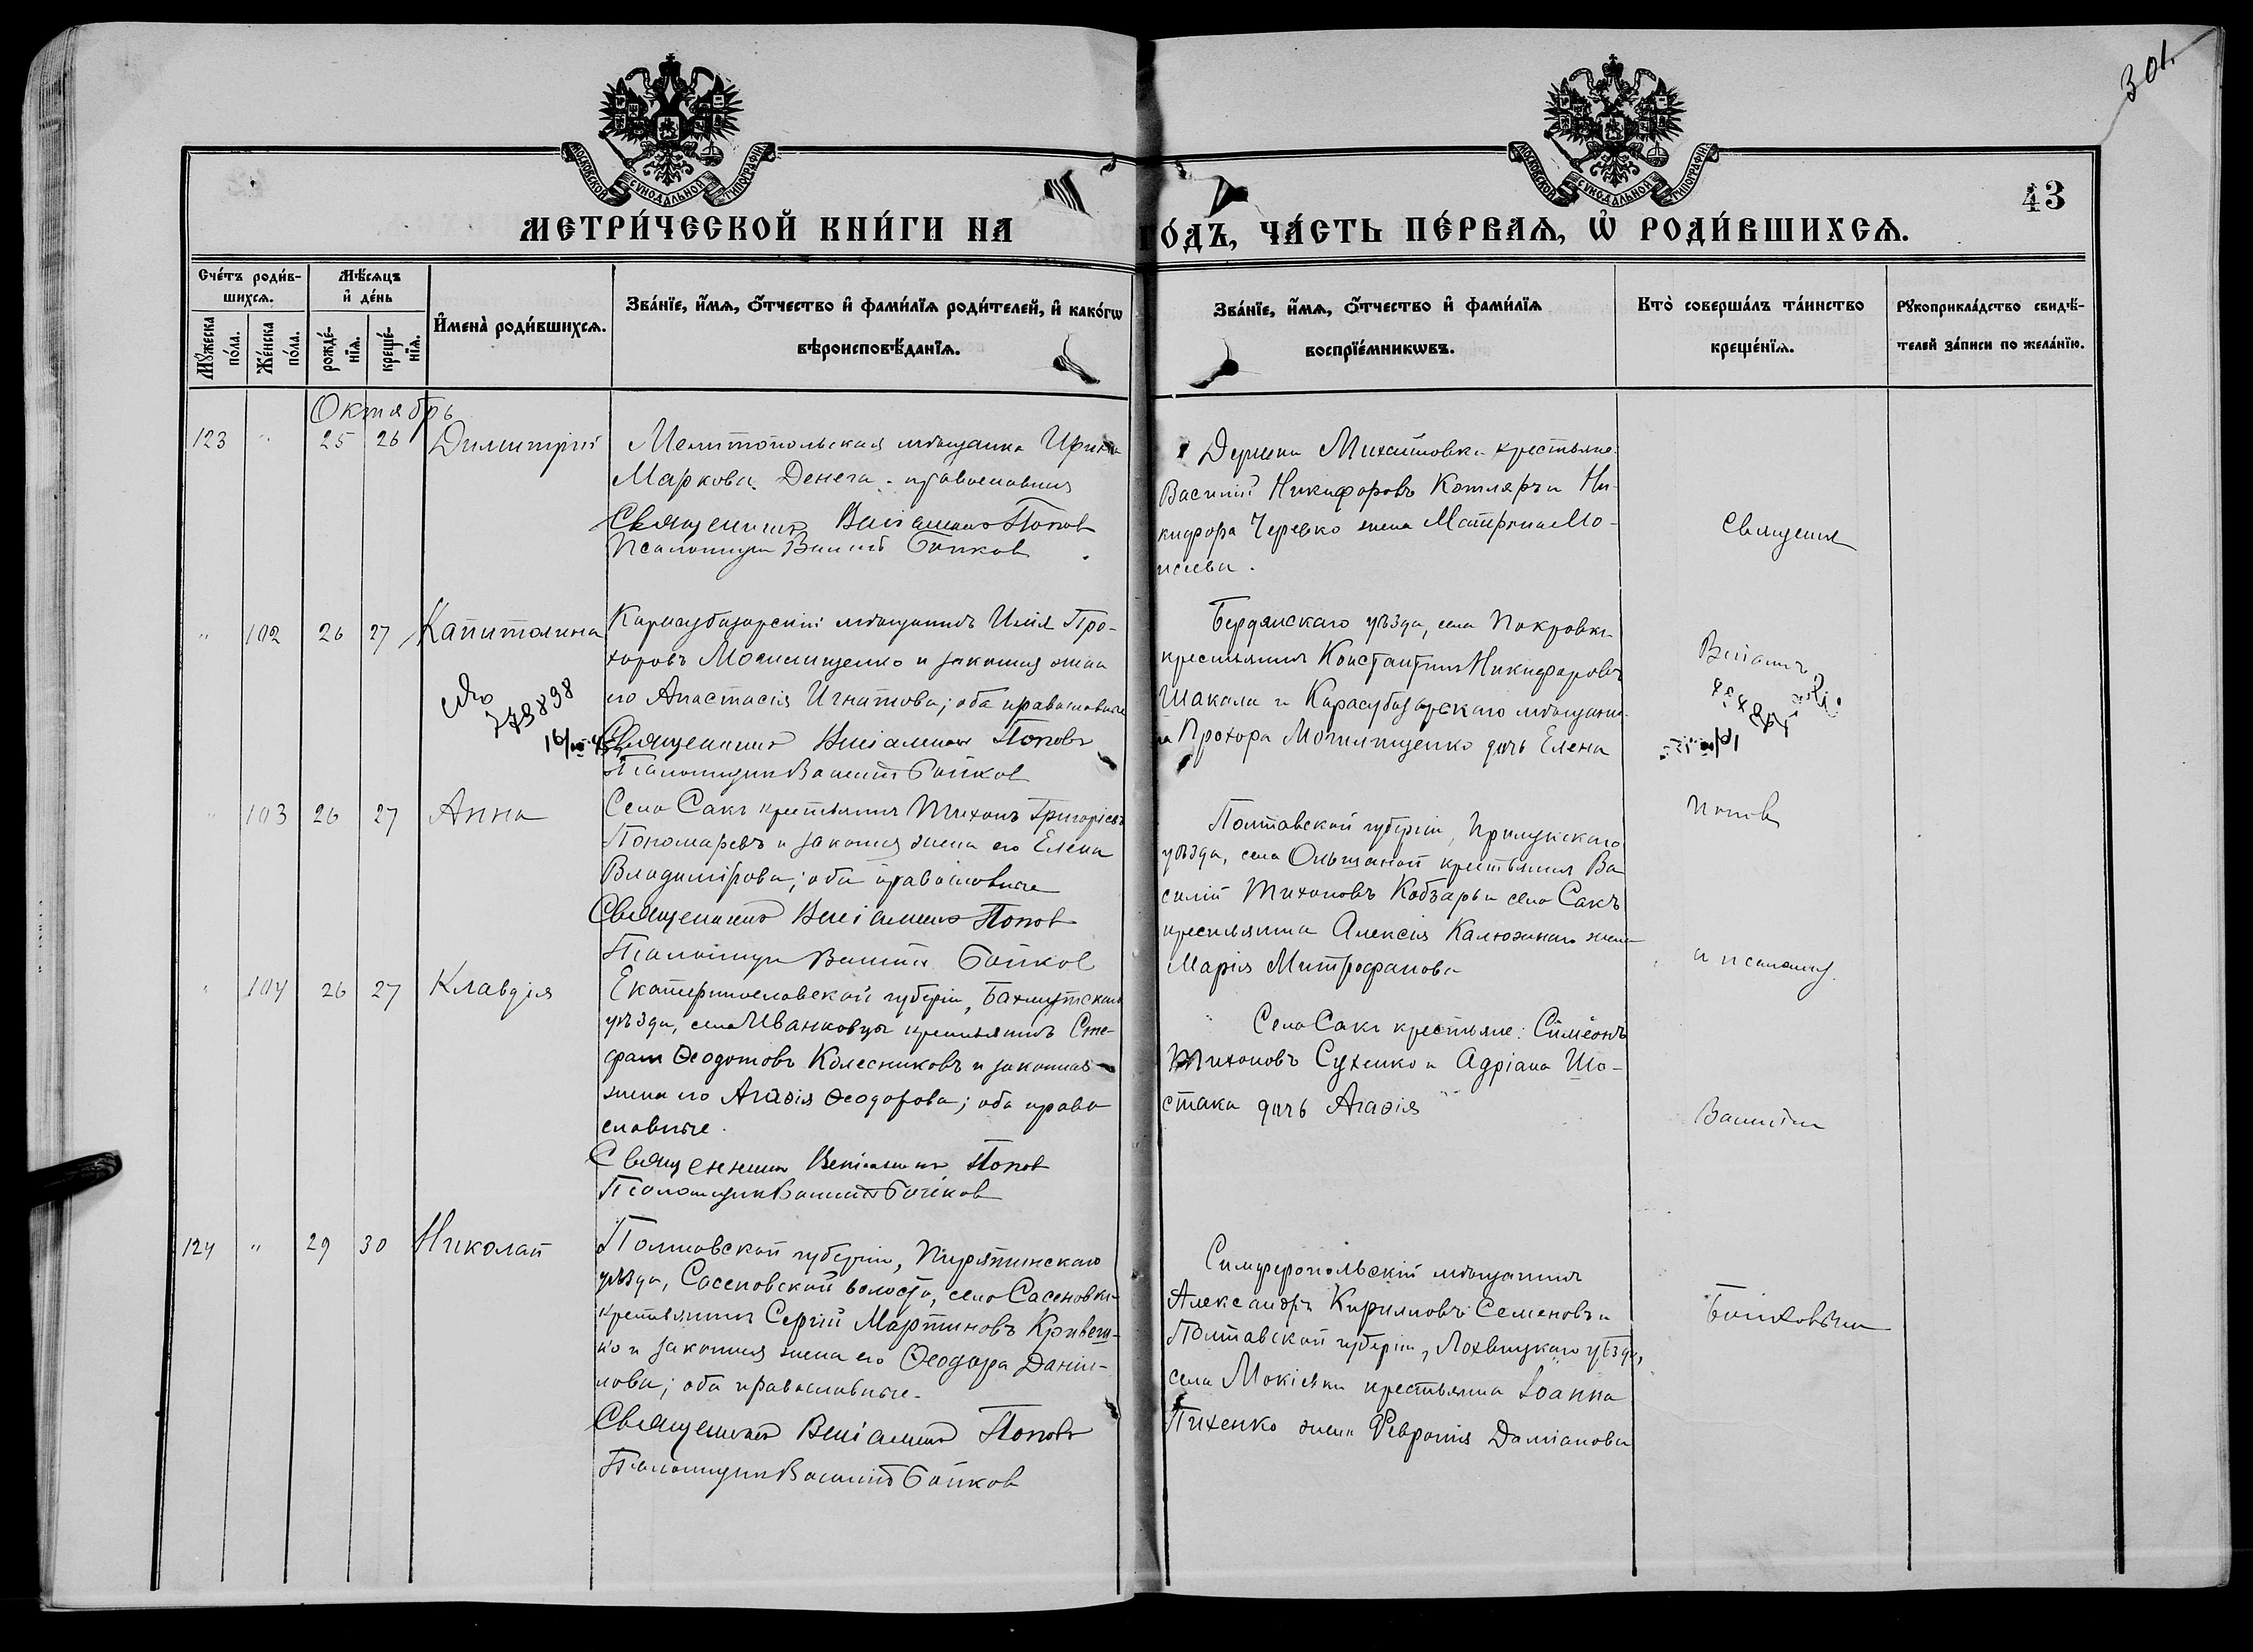 301.
МОСКОВСКОЙ СѴНОДАЛЬНОЙ ТИПОГРАФІИ
МОСКОВСКОЙ СѴНОДАЛЬНОЙ ТИПОГРАФІИ
43
МЕТРИ́ЧЕСКОЙ КНИ́ГИ НА
О́ДЪ, ЧА́СТЬ ПЕ́РВАѦ, Ѡ҆ РОДИ́ВШИХСѦ.
Сче́тъ роди́в-
шихсѧ.
Мѣ́сѧцъ
и҆ де́нь
Мꙋ́жеска
по́ла.
Же́нска
по́ла.
рожде́-
нїѧ.
креще́-
нїѧ.
И҆мена̀ роди́вшихсѧ.
Зва́нїе, и҆́мѧ, ѻ҆́тчество и҆ фами́лїѧ роди́телей, и҆ како́гѡ
вѣроисповѣ́данїѧ.
Зва́нїе, и҆́мѧ, ѻ҆́тчество и҆ фами́лїѧ
воспрїе́мникѡвъ.
Кто̀ соверша́лъ та́инство
креще́нїѧ.
Рꙋкоприкла́дство свидѣ́-
телей за́писи по жела́нїю.
Октябрь
123 " 25 26 Димитрій
Мелитопольская мѣщанка Ирина
Маркова Денега - православная
Священникъ Веніаминъ Попов
Псаломщикъ Василій Бойков
Деревни Михайловки крестьяне:
Василій Никифоровъ Котляръ и Ни-
кифора Черевко жена Матрона Мо-
исеева.
Священник
" 102 26 27 Капитолина
Карасубазарскій мѣщанинъ Илія Про-
хоровъ Могилищенко и законная жена
его Анастасія Игнатова; оба православные
Священникъ Веніаминъ Поповъ
Псаломщик Василій Бойков
779898
Бердянскаго уѣзда, села Покровки
крестьянинъ Константинъ Никифоровъ
Шакала и Карасубазарскаго мѣщани-
на Прохора Могилищенко дочь Елена
Веніаминъ
" 103 26 27 Анна
Села Сакъ крестьянинъ Тихонъ Григорьевъ
Пономаревъ и законная жена его Елена
Владимірова; оба православные
Священникъ Веніаминъ Попов
Псаломщик Василій Бойков
Полтавской губерніи, Прилукскаго
уѣзда, села Ольшаной крестьянинъ Ва
силій Тихоновъ Кобзарь и села Сакъ
крестьянина Алексія Калюжнаго жена
Марія Митрофанова
Попов
и псаломщ.
" 104 26 27 Клавдія
Екатеринославской губерніи, Бахмутскаго
уѣзда, села Иванковцы крестьянинъ Сте-
фанъ Ѳеодотовъ Колесниковъ и законная
жена его Агаѳія Ѳеодорова; оба право
славные.
Священникъ Веніаминъ Попов
Псаломщик Василій Бойков
Села Сакъ крестьяне: Симеонъ
Тихоновъ Сухенко и Адріана Шо-
стака дочь Агаѳія
Василіем
124 " 29 30 Николай
Полтавской губерніи, Пирятинскаго
уѣзда, Сасеновской волости, села Сасеновки
крестьянинъ Сергій Мартиновъ Кривеш-
ко и законная жена его Ѳеодора Даніи-
лова; оба православные.
Священникъ Веніаминъ Поповъ
Псаломщик Василій Бойков
Симферопольскій мѣщанинъ
Александръ Кирилловъ Семеновъ и
Полтавской губерніи, Лохвицкаго уѣзда,
села Мокіевки крестьянина Іоанна
Пихенко жена Февронія Даміанова
Бойковым